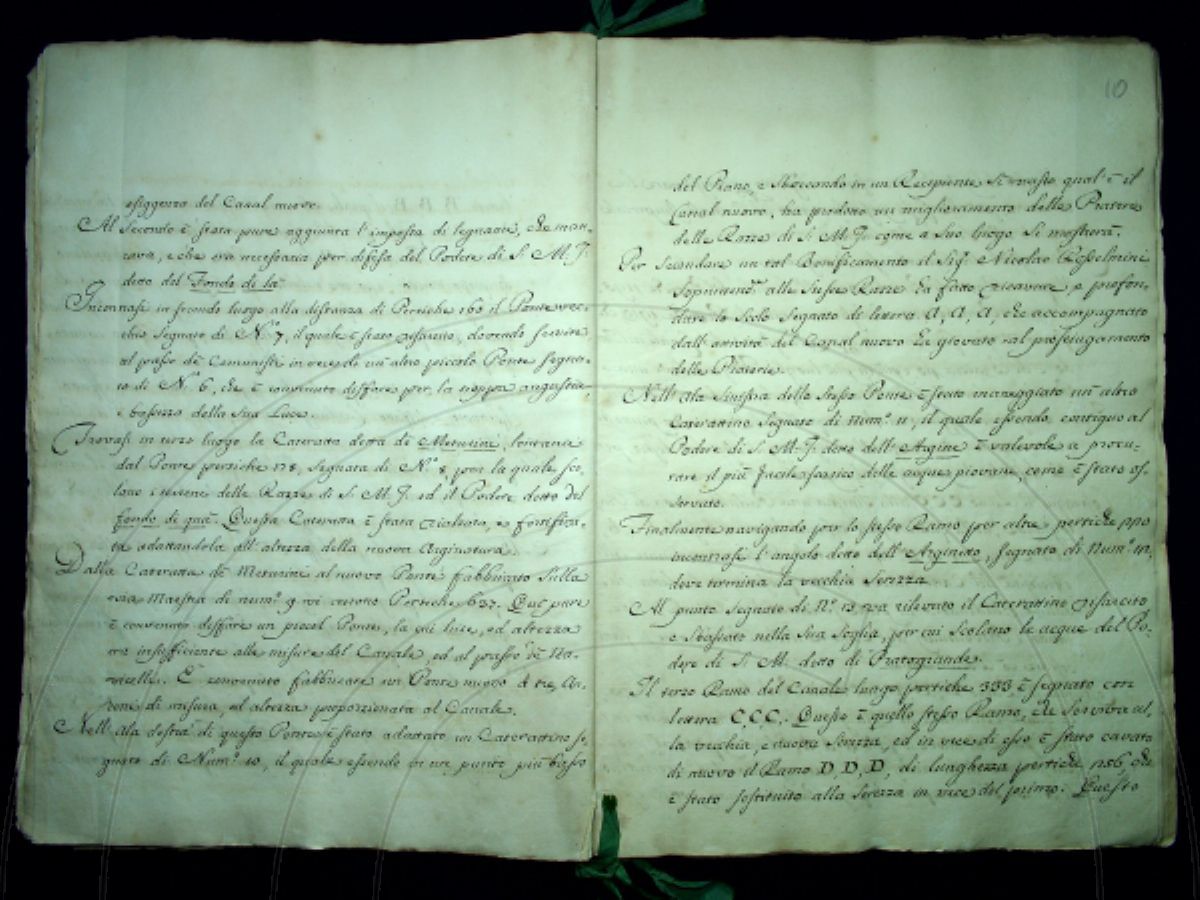 esiggenza del Canal nuovo.
Al Secondo è stata pure aggiunta l'imposta di legname, che man-
cava, e che era necessaria per difesa del Podere di S. M. I.
detto del Fondo di la.
Incontrasi in secondo luogo alla distanza di Pertiche 160 il Ponte vec-
chio Segnato di N.º 7, il quale è stato risarcito, dovendo servire
al passo de Comunisti in vece di un altro piccolo Ponte segna-
to di N.º 6, che è convenuto disfare per la troppa angustia
e bassezza della Sua Luce.
Trovasi in terzo luogo la Cateratta detta di Meturini, lontana
dal Ponte pertiche 178, Segnata di N.º 8, per la quale sco-
lano i terreni delle Razze di S. M. I. ed il Podere detto del
fondo di quà. Questa Cateratta è stata rialzata, e fortifica-
ta adattandola all'altezza della nuova Arginatura.
Dalla Cateratta de Meturini al nuovo Ponte fabbricato sulla
via Maestra di num.º 9 vi corrono Pertiche 637. Qui pure
è convenuto disfare un piccol Ponte, la cui luce, ed altezza
era insufficiente alle misure del Canale, ed al passo de Na-
vicelli. E convenuto fabbricare un Ponte nuovo di tre Ar-
coni di misura, ed altezza proporzionata al Canale.
Nell'Ala destra di questo Ponte si è stato adattato un Caterattino se-
gnato di Num.º 10, il quale essendo in un punto più basso
10
del Piano, e sboccando in un Recipiente sì vasto qual è il
Canal nuovo, ha prodotto un miglioramento delle Praterie
delle Razze di S. M. I. come a suo luogo si mostrerà.
Per secondare un tal Bonificamento il Sig.r Niccolao Rosselmini
Soprintend.te alle stesse Razze ha fatto ricavare, e profon-
dare lo Scolo Segnato di lettera A, A, A, che accompagnato
dall'attività del Canal nuovo ha giovato al prosciugamento
delle Praterie.
Nell'Ala sinistra dello stesso Ponte è stato maneggiato un'altro
Caterattino Segnato di Num.º 11, il quale essendo contiguo al
Podere di S. M. I. detto dell'Argine è valevole a procu-
rare il più facile scarico delle acque piovane, come è stato os-
servato.
Finalmente navigando per lo stesso Ramo per altre pertiche 190
incontrasi l'angolo detto dell'Arginetto, segnato di Num.º 12,
dove termina la vecchia Serezza.
Al punto segnato di N.º 13 va rilevato il Caterattino risarcito
e sbassato nella Sua Soglia, per cui scolano le acque del Po-
dere di S. M. detto di Pratogrande.
Il terzo Ramo del Canale lungo pertiche 333 è segnato con
lettera C, C, C,. Questo è quello stesso Ramo, che serviva al-
la vecchia, e nuova Serezza, ed in vece di esso è stato cavato
di nuovo il Ramo D, D, D, di lunghezza pertiche 256, che
è stato sostituito alla Serezza in vece del primo. Questo